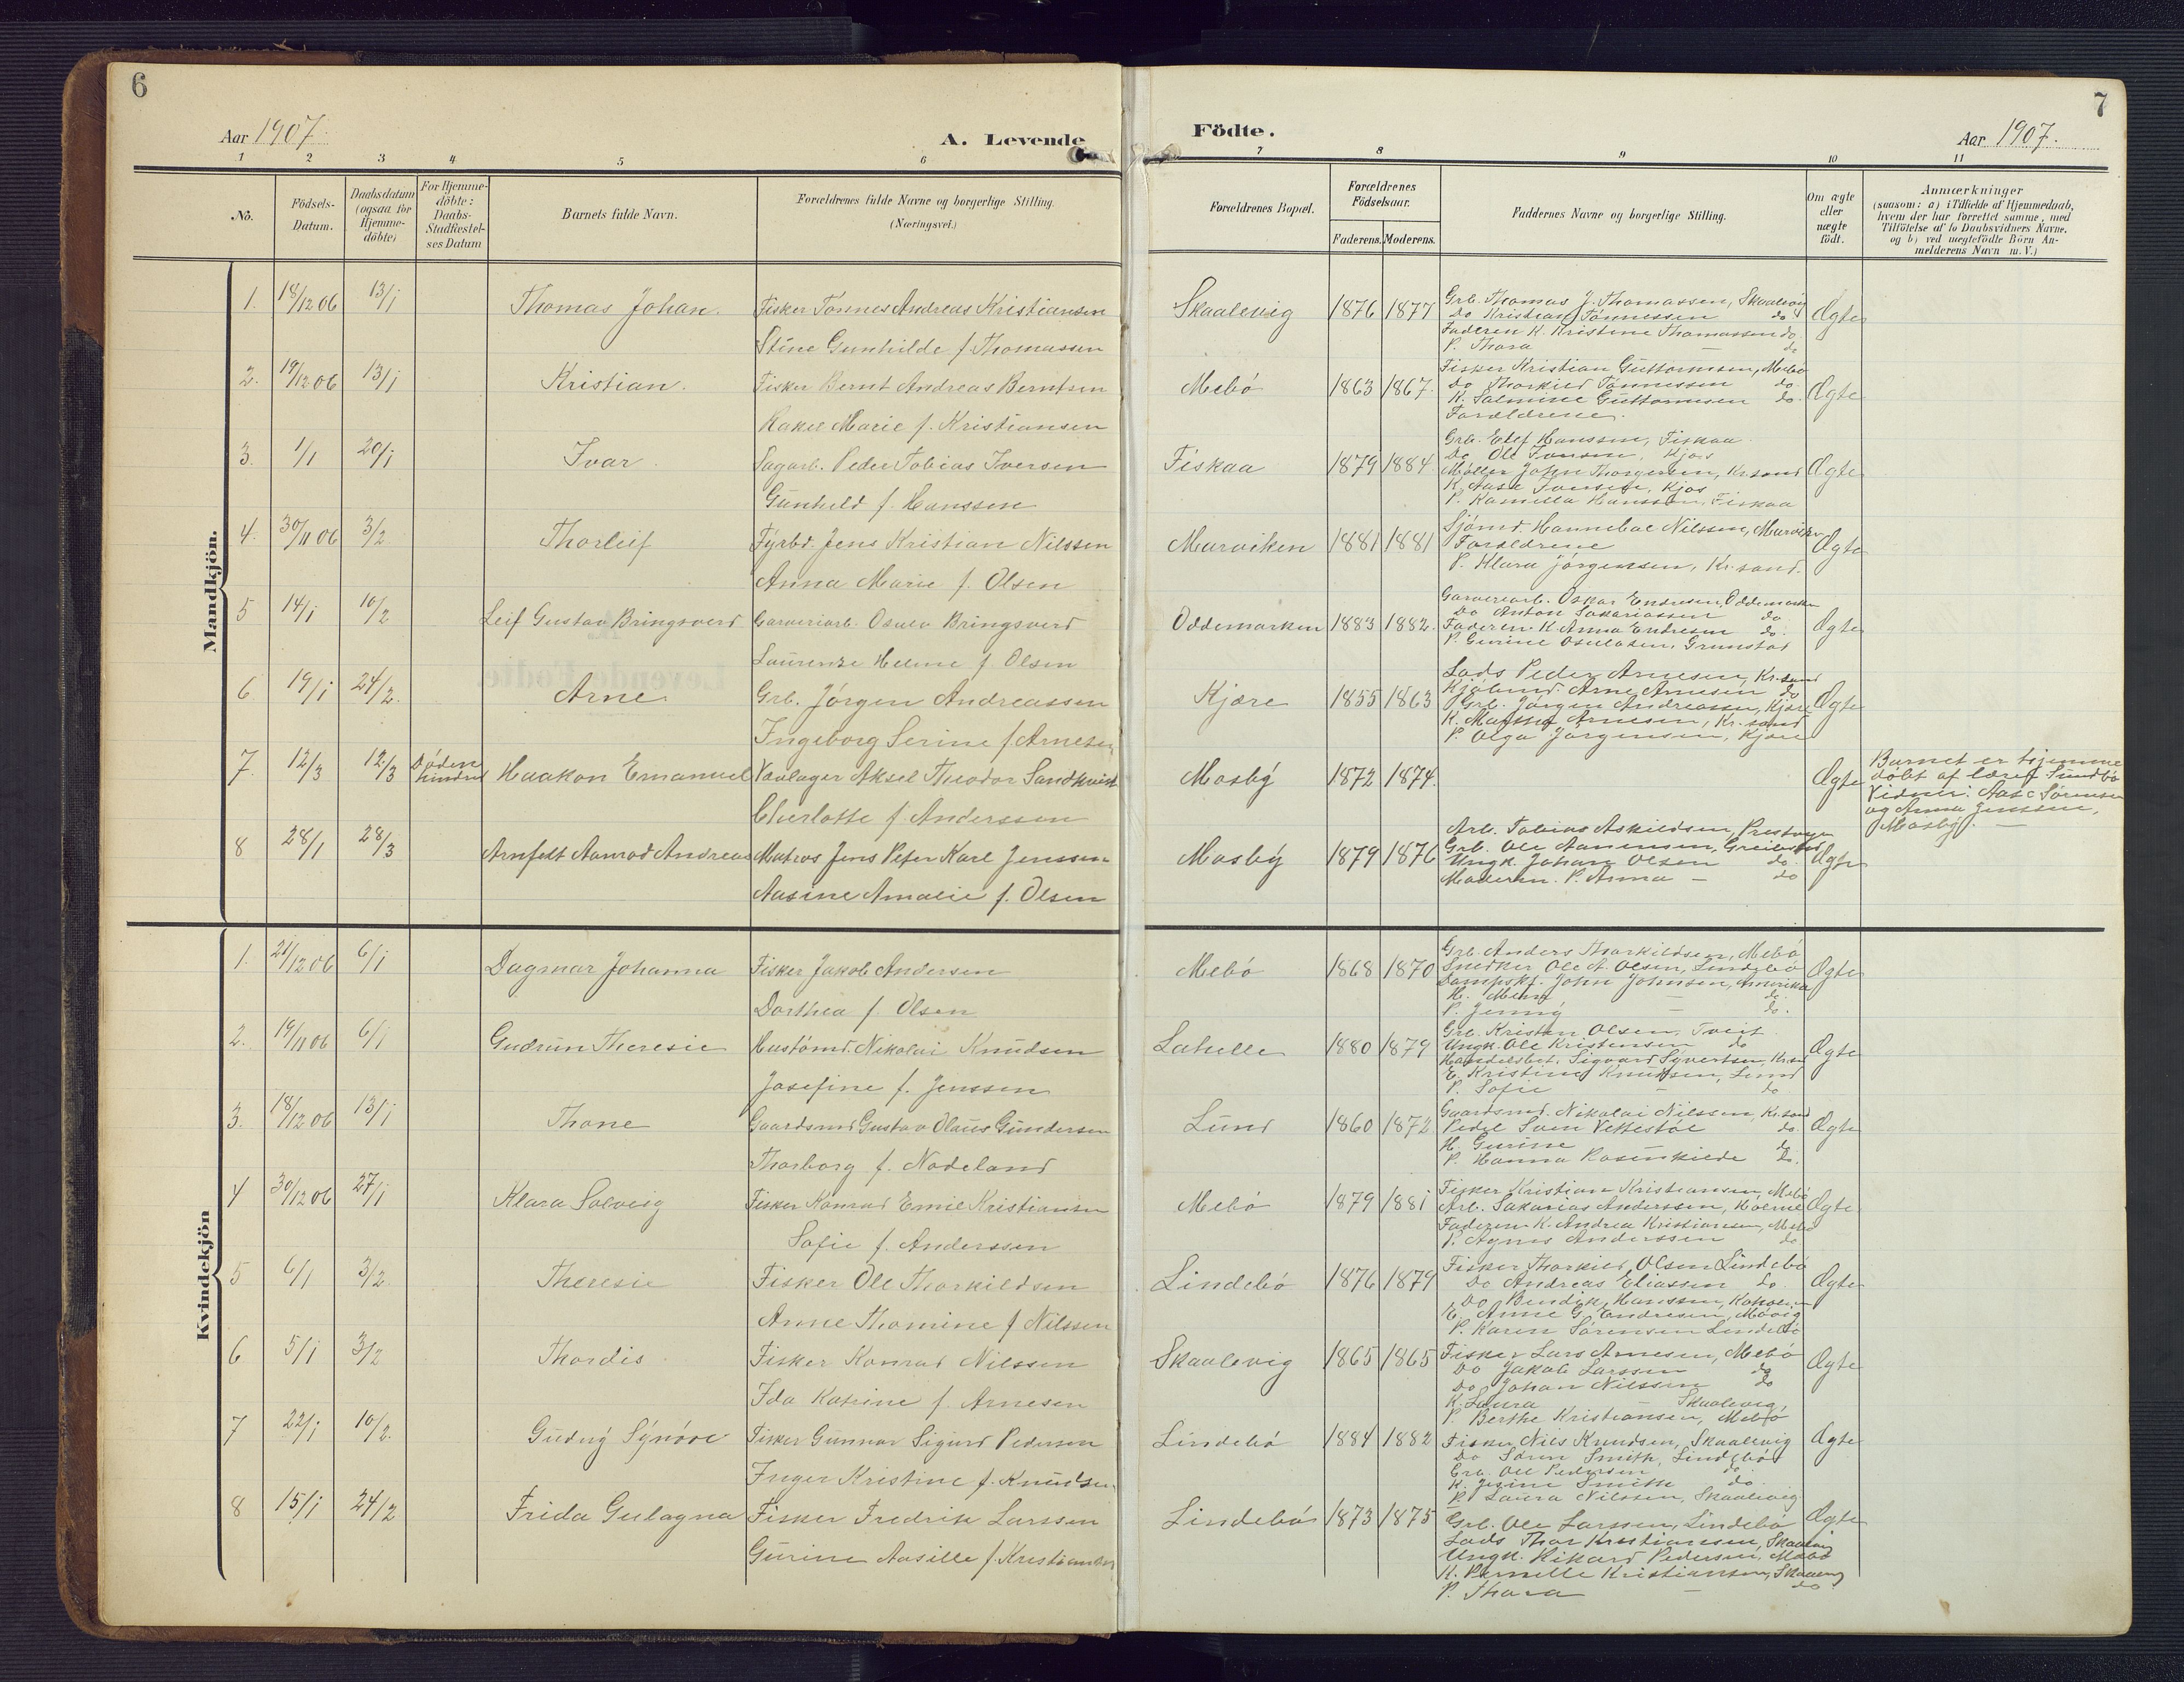 6
Aar 1907.
A. Levende
1 2 3 4 5 6
No.
Födsels-Datum.
Daabsdatum (ogsaa for Hjemme-döbte)
For Hjemme-döbte: Daabs-Stadfæstel-ses Datum
Barnets fulde Navn.
Forældrenes fulde Navne og borgerlige Stilling.
(Næringsvei.)
Mandkjön.
1. 18/12 06 13/1 Thomas Johan. Fisker Tønnes Andreas Kristiansen
Stine Gunhilde f. Thomassen
2. 19/12 06 13/1 Kristian. Fisker Bernt Andreas Berntsen
Marie f. Kristiansen
3. 1/1 20/1 Ivar Sagarb. Peder Tobias Iversen
Gunhild f. Hanssen
4. 30/11 06 3/2 Thorleif Fyrbd. Jens Kristian Nilssen
Anna Marie f. Olsen
5 14/1 10/2 Leif Gustav Bringsverd Garveriarb. Osuld Bringsverd
Laurenze Helene f. Olsen
6 19/1 24/2 Arne Grb. Jörgen Andreassen
Ingeborg Serine f. Arnesen
7. 12/3 12/3 Døden hindret Haakon Emanuel Aksel Theodor Sandkvist
Charlotte f. Andersson
8 28/1 28/3 Arnfelt Aanrod Andreas Matros Jens Peter Karl Jenssen
Aasine Amalie f. Olsen
Kvindekjön
1. 21/12 06 6/1 Dagmar Johanna Fisker Jakob Andersen
Dorthea f. Olsen
2. 19/11 06 6/1 Gudrun Theresie Hustömd. Nikolai Knudsen
Josefine f. Jenssen
3. 18/12 06 13/1 Thone Gaardsmd Gustav Olaus Gundersen
Thorborg f. Nodeland
4 30/12 06 27/1 Klara Solveig Fisker Konrad Emil Kristiansen
Sofie f. Anderssen
5 6/1 3/2 Theresie Fisker Ole Thorkildsen
Anne Thomine f Nilssen
6 5/1 3/2 Thordis Fisker Konrad Nilssen
Ida Katrine f. Arnesen
7 22/1 10/2 Gudny Synöve Fisker Gunnar Sigurd Pedersen
Inger Kristine f. Knudsen
8 15/1 24/2 Frida Gulagna Fisker Fredrik Larssen
Gurine Aasille f. Kristiansen
7
Födte.
Aar 1907.
7 8 9 10 11
Forældrenes Bopæl.
Forældrenes Födselsaar.
Faderens. Moderens.
Faddernes Navne og borgerlige Stilling.
Om ægte eller uægte födt.
Anmærkninger
(saasom: a) i Tilfælde af Hjemmedaab,
hvem der har forrettet samme, med
Tilföielse af to Daabsvidners Navne,
og b) ved uægtefödte Börn An-
melderens Navn m. V.)
Skaalevig 1876 1877 Ægte
Grb. Thomas J. Thomassen, Skaalevig
Do Kristian Tønnessen do
Faderen K. Kristine Thomassen do
P. Thora — do
Mebö 1863 1867. Ægte
Fisker Kristian Guttormsen, Mebö
Do Thorkild Tønnessen do.
K. Salmine Guttormsen do.
Forældrene.
Fiskaa 1879 1884. Ægte
Grb. Elef Hanssen, Fiskaa
Do Ole Tønsen, Kjos
Möller John Thorgersen, Kr.sand
K. Aase Tønsen, Kjos
P. Kamilla Hanssen, Fiskaa
Marviken 1881 1881 Ægte
Sjömd. Hannibal Nilssen, Marviken
Forældrene
P. Klara Jörgensen, Kr.sand.
Oddemarken 1883 1882. Ægte
Garveriarb. Oskar Endresen, Oddemarken
Do Anton Sakariassen do
Faderen. K. Anna Endresen do.
P. Gurine Osuldsen, Grimstad
Kjære 1855 1863 Ægte
Lods Peder Arnesen, Kr.sand
Kjöbmd. Arne Arnesen do
Grb. Jörgen Andreassen, Kjære
K. Arnesen, Kr.sand
P. Olga Jörgensen, Kjære
Mosby 1872 1874. Ægte
Barnet er hjemme
döbt af lærer Sundbö
Vidner: Aase Sörensen
og Anna Jenssen,
Mosby. —
Mosby 1879 1876 Ægte
Arb. Tobias Askildsen, Prestvgen
Grb. Ole Aanensen, Greibsted
Ungk. Johan Olsen do.
Moderen. P. Anna — do
Mebö 1868 1870 Ægte
Grb. Anders Thorkildsen, Mebö
Snedker Ole A. Olsen, Lindebö
Dampskf. John Johnsen, Amerika
H. — do.
P. Jenny — do.
Lahelle 1880 1879 Ægte
Grb. Kristen Olsen, Tveit
Ungk. Ole Kristensen do
Handelsbet. Sigvard Syvertsen, Kr.sd
E. Kristine Knudsen, Lund
P. Sofie — do
Lund 1860 1872 Ægte
Gaardsmd. Nikolai Nilssen Kr.sand
Pedel Sven Vettestöl do.
H. Gurine — do
P. Hanna Rosenkilde do.
Mebö 1879 1881 Ægte
Fisker Kristian Kristiansen, Mebö
Arb. Sakarias Anderssen,
Faderen K. Andrea Kristiansen, Mebö
P. Agnes Anderssen do
Lindebö 1876 1879 Ægte
Fisker Thorkild Olsen Lindebö
Do Andreas Eliassen do.
Do Bendik Hanssen,
E. Anne G. Endresen, Mövig
P. Karen Sörensen Lindebö
Skaalevig 1865 1865 Ægte
Fisker Lars Arnesen, Mebö
Do Jakob Larssen do
Do Johan Nilssen do
K. Laura — Skaalevig,
P. Berthe Kristiansen, Mebö
Lindebö 1884 1882 Ægte
Fisker Nils Knudsen, Skaalevig
Do Sören Smith, Lindebö
Grb. Ole Pedersen do.
K. Jesine Smith do.
P. Laura Nilssen, Skaalevig
Lindebö 1873 1875 Ægte
Grb. Ole Larssen, Lindebö
Lods Thor Kristiansen, Skaalevig
Ungk. Rikard Pedersen, Mebö
K. Pernille Kristiansen, Skaalevig
P. Thora — do